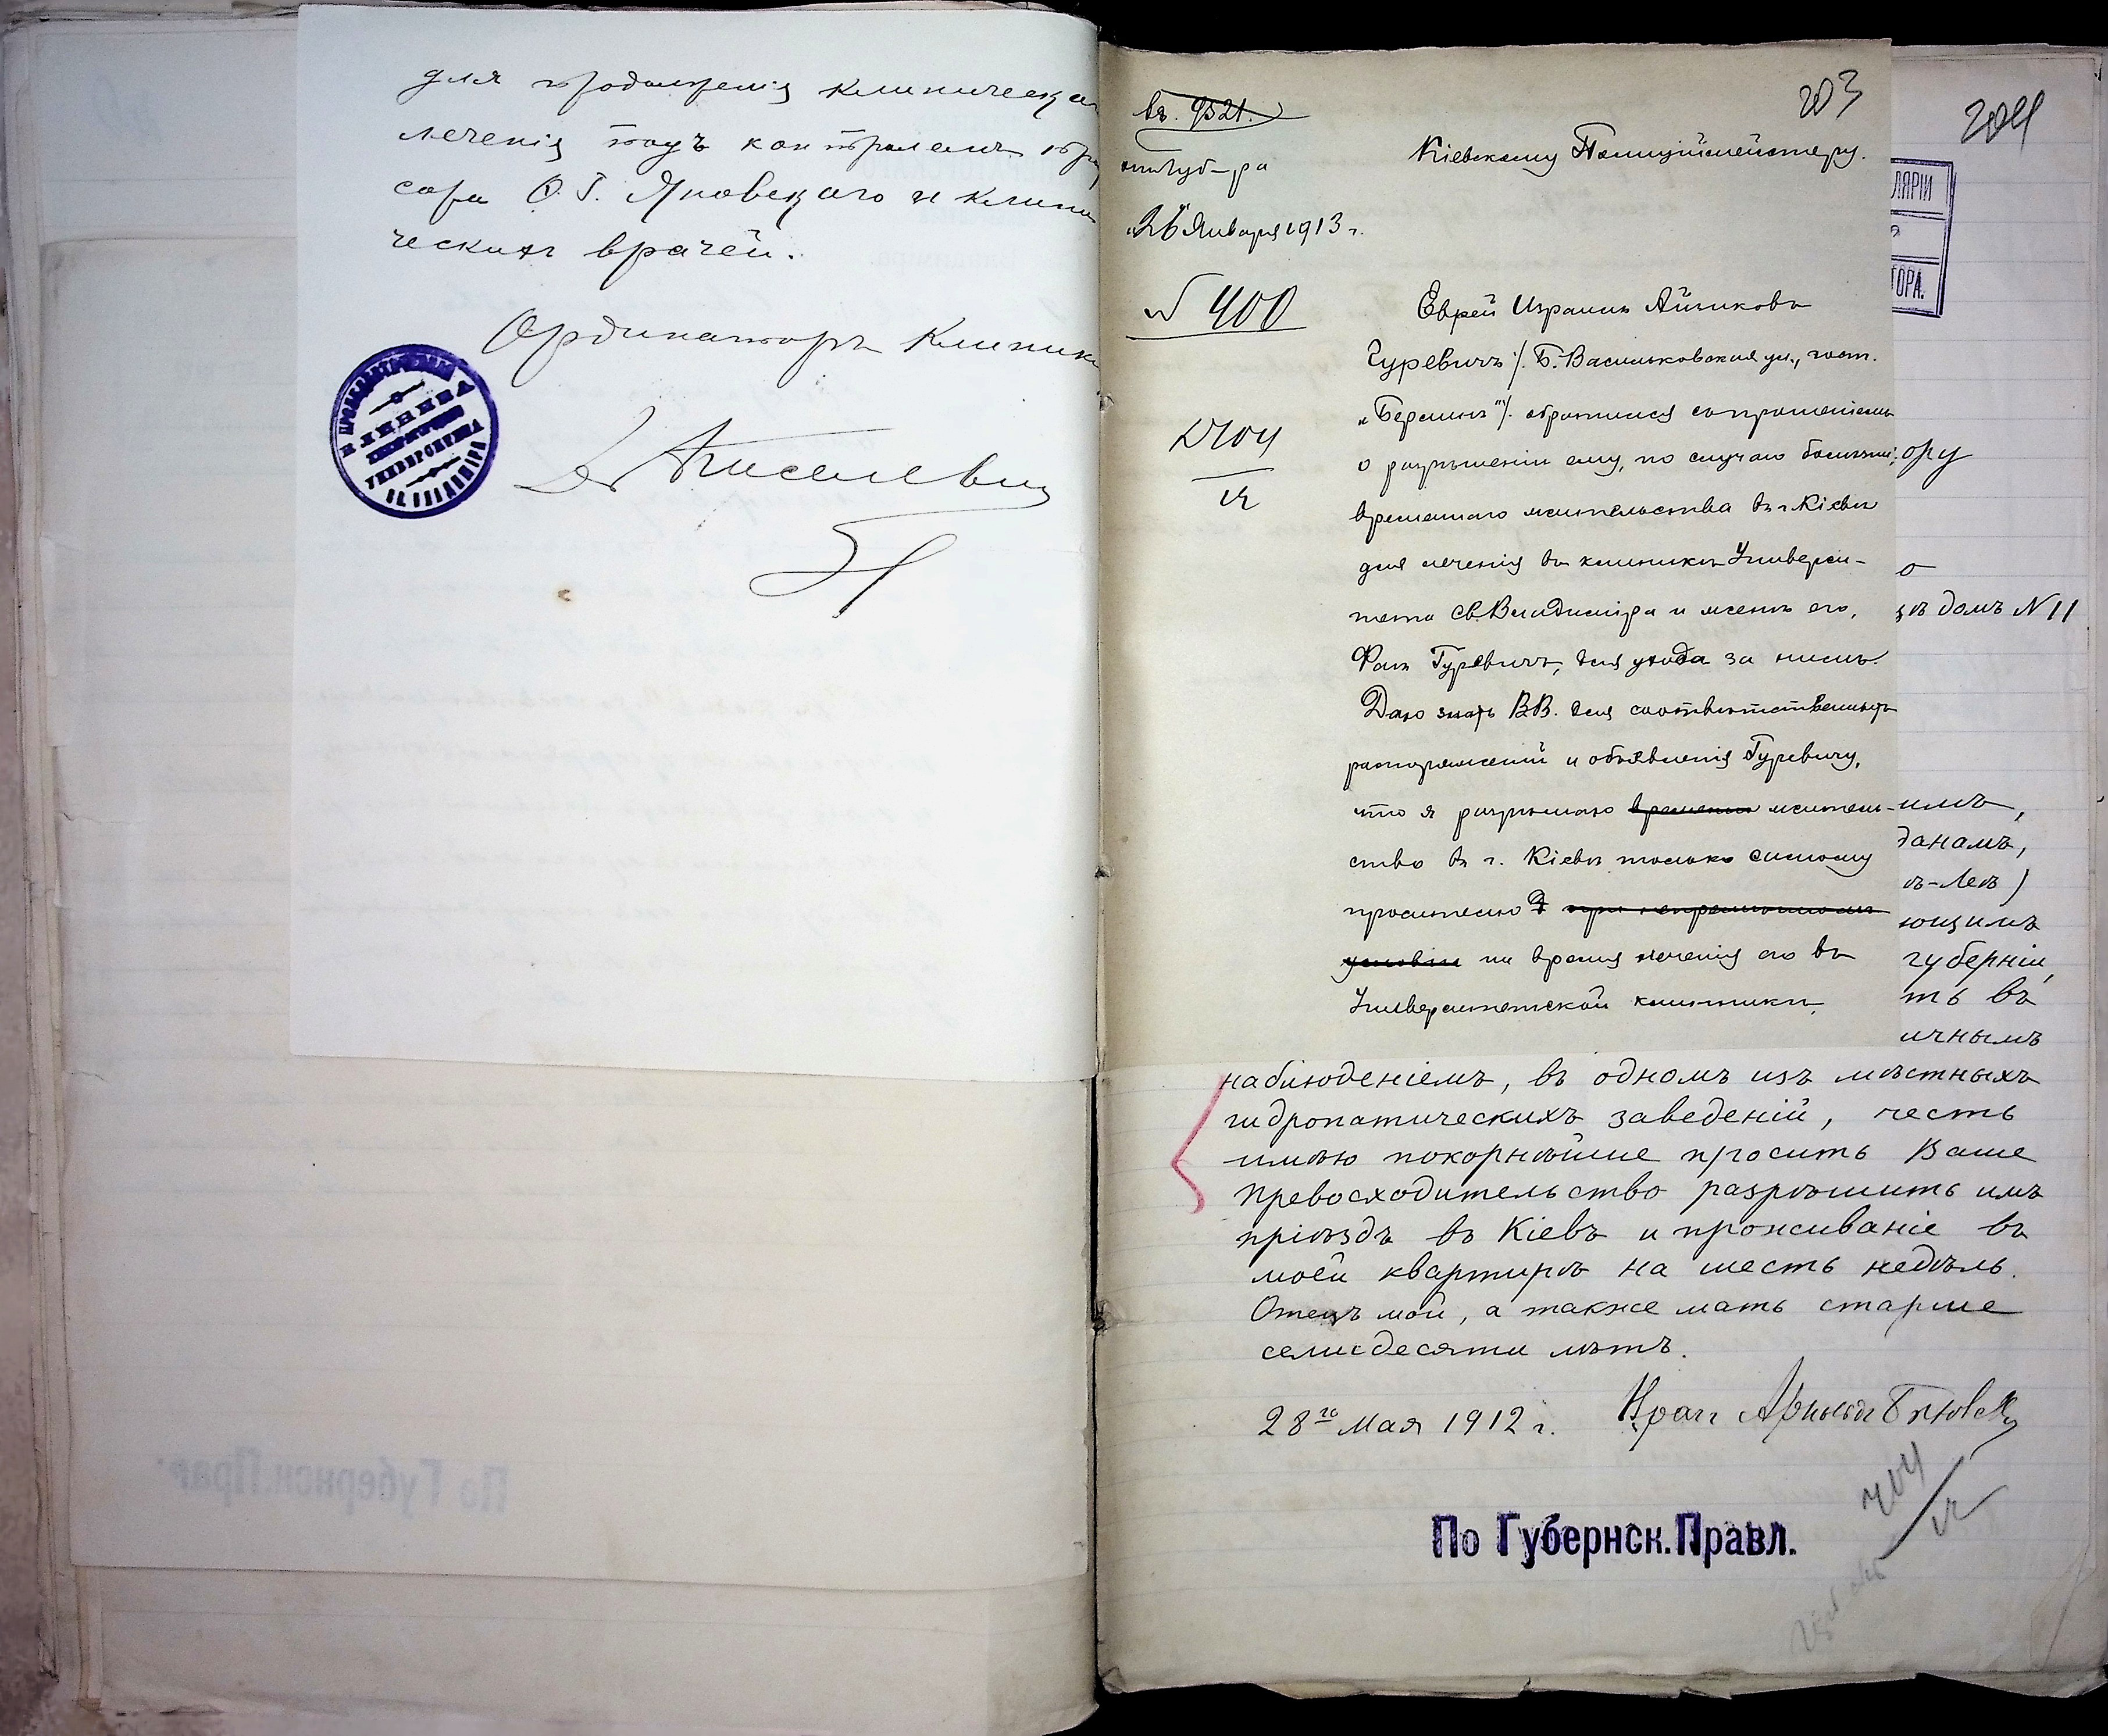 для продолженія клиническа
леченія подъ контролемъ про
сора Ѳ. Г. Яновскаго и клини
ческихъ врачей.
Ординаторъ Клиники
КЛИНИКА
УНИВЕРСИТЕТА
СВ. ВЛАДИМІРА
203
Вх. 9521.
Кіевскому Полиціймейстеру.
губ-ра
26 Января 1913 г.
№ 400
Еврей Израиль Айзиковъ
Гуревичъ /. Б. Васильковская ул., гост.
„Берлинъ"/. обратился съ прошеніемъ
о разрѣшеніи ему, по случаю болѣзни,
временнаго жительства въ г. Кіевѣ
для леченія въ клиникѣ Универси-
тета Св. Владиміра и женѣ его,
Фаѣ Гуревичъ, для ухода за нимъ.
Даю знать ВВ. для соотвѣтственныхъ
распоряженій и объявленія Гуревичу,
что я разрѣшаю временно житель-
ство въ г. Кіевѣ только самому
просителю при непремѣнномъ
условіи на время леченія его въ
Университетской клиникѣ.
204
ЛЯРІИ
ТОРА.
ору
о
домъ N 11
имъ,
данамъ,
ъ-Лев)
ющимъ
губерніи,
ть въ
ичнымъ
наблюденіемъ, въ одномъ изъ мѣстныхъ
гидропатическихъ заведеній, честь
имѣю покорнѣйше просить Ваше
Превосходительство разрѣшить имъ
пріѣздъ въ Кіевъ и проживаніе въ
моей квартирѣ на шесть недѣль.
Отецъ мой, а также мать старше
семидесяти лѣтъ.
28го Мая 1912 г. Врач Арнольд
По Губернск. Правл.